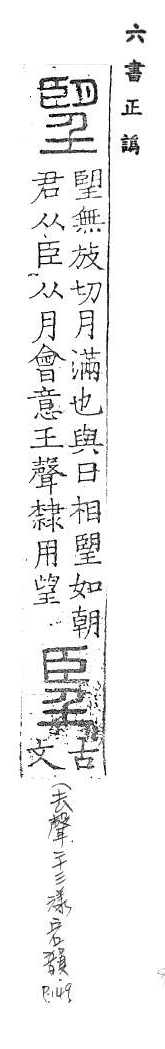 六書正譌
朢
朢無放切月滿也與日相朢如朝
君从臣从月會意王聲隸用望
𦣠
古文
(去聲二十三漾宕韻
P.149